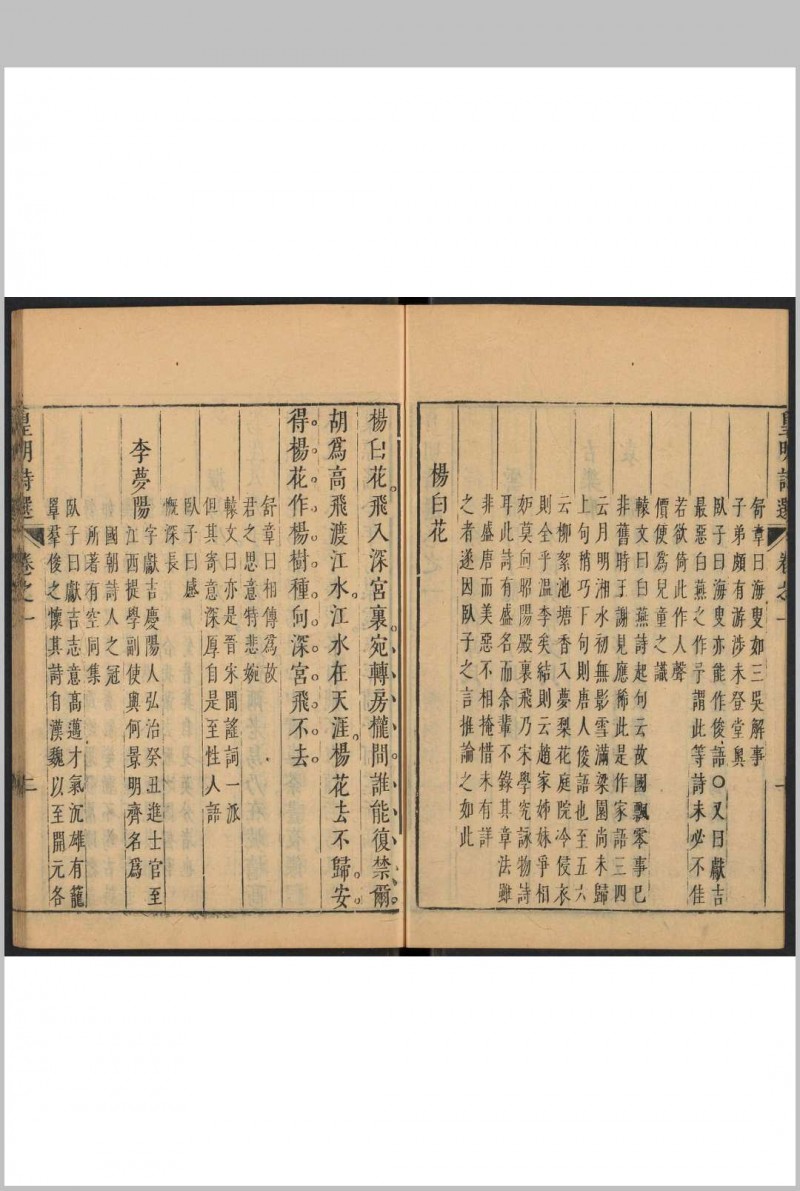 皇明詩選 卷之一 一
舒章曰海叟如三吳解事
子弟頗有游涉未登堂奧
臥子曰海叟亦能作俊語○又曰獻吉
最惡白燕之作予謂此等詩未必不佳
若欲倚此作人聲
價便爲兒童之識
轅文曰白燕詩起句云故國飄零事已
非舊時王謝見應稀此是作家語三四
云月明湘水初無影雪滿梁園尚未歸
上句稍巧下句則唐人俊語也至五六
云柳絮池塘香入夢梨花庭院冷侵衣
則全乎溫李矣結則云趙家姊妹爭相
妒莫向昭陽殿裏飛乃宋學究詠物詩
耳此詩有盛名而余輩不錄其章法雖
非盛唐而美惡不相掩惜未有詳
之者遂因臥子之言推論之如此
楊白花
楊白花飛入深宮裏宛轉房櫳間誰能復禁爾
胡爲高飛渡江水江水在天涯楊花去不歸安
得楊花作楊樹種向深宮飛不去
舒章曰相傳爲故
君之思意特悲婉
轅文曰亦是晉宋間謠詞一派
但其寄意深厚自是至性人語
臥子曰感
慨深長
李夢陽
字獻吉慶陽人弘治癸丑進士官至
江西提學副使與何景明齊名爲
國朝詩人之冠
所著有空同集
臥子曰獻吉志意高邁才氣沉雄有籠
罩羣俊之懷其詩自漢魏以至開元各
皇明詩選 卷之一 二